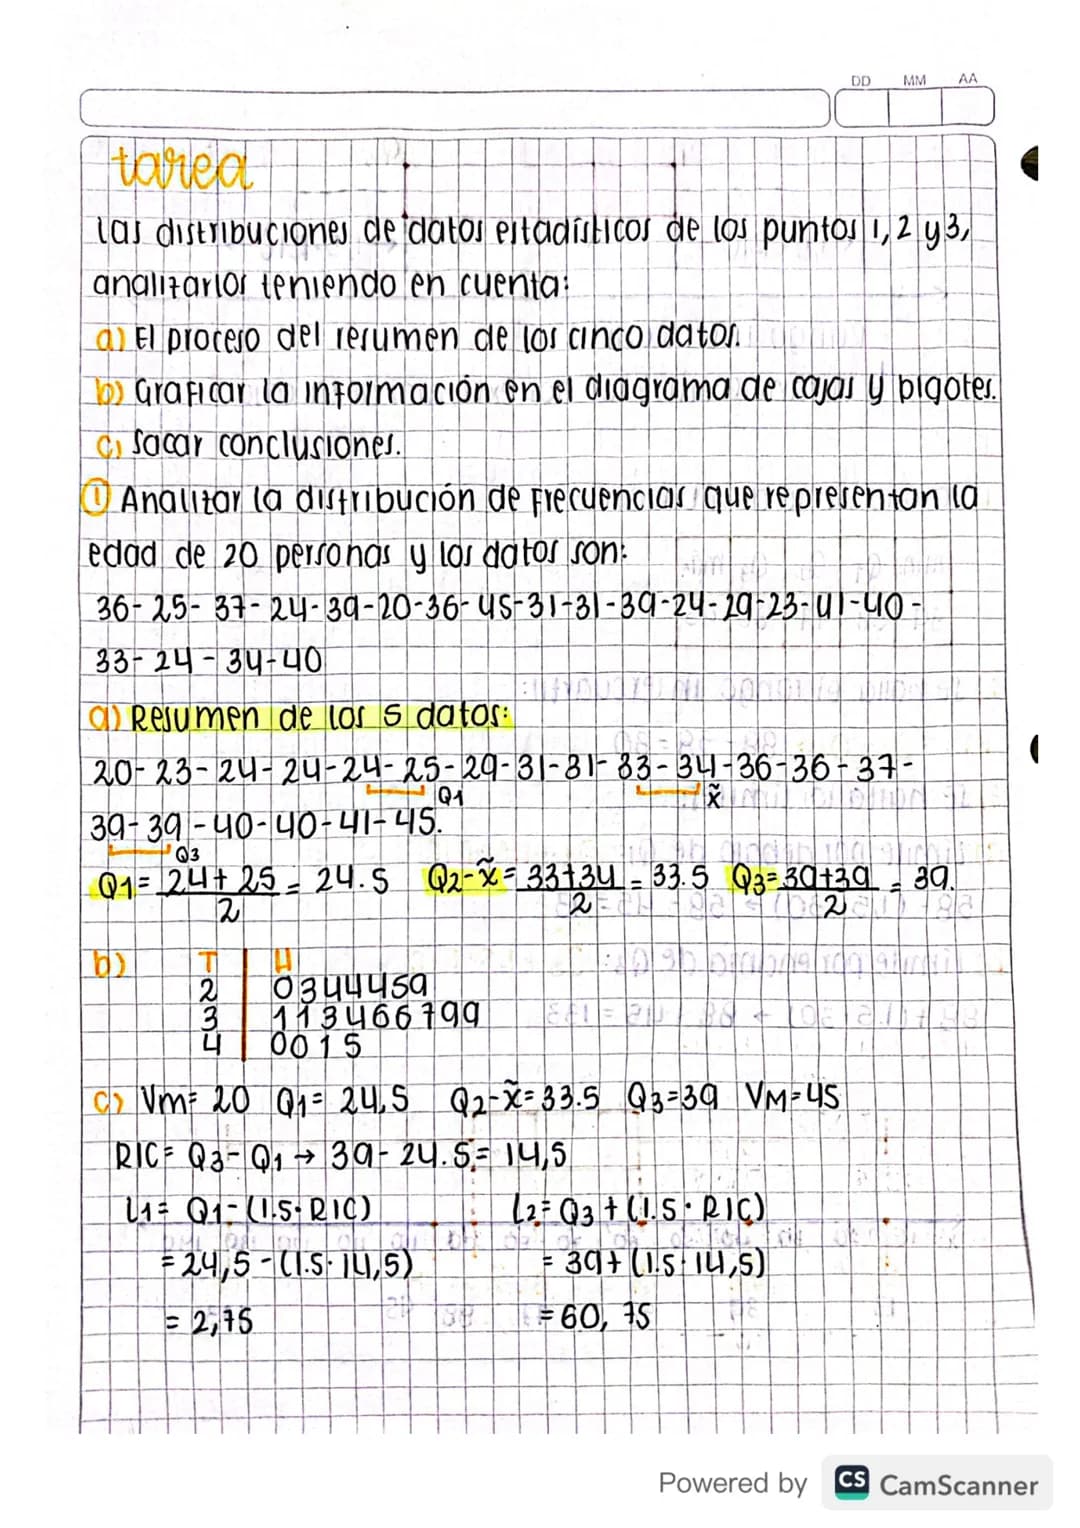 DD MM AA
tarea
las distribuciones de datos estadísticos de los puntos 1, 2 y 3,
analizarlos teniendo en cuenta:
a) El proceso del resumen de los cinco datos.
b) Graficar la información en el diagrama de cajas y bigotes.
c) Sacar conclusiones.
① Analizar la distribución de frecuencias que representan la
edad de 20 personas y los datos son:
36- 25- 37- 24- 39-20-36-45-31-31-39-24-29-23-41-40-
33- 24 - 34-40
a) Resumen de los 5 datos:
20- 23- 24- 24- 24- 25- 29- 31- 31- 33- 34- 36- 36- 37-
Q1 x̃
39- 39- 40- 40- 41- 45.
Q3
Q1= 24+25/2 = 24.5 Q2-x̃= 33+34/2 = 33.5 Q3= 39+39/2 = 39.
b) T | H
2 | 0344459
3 | 113466799
4 | 0015
c) Vm= 20 Q1= 24,5 Q2-x̃= 33.5 Q3=39 VM=45
RIC= Q3- Q1 → 39- 24.5= 14,5
L1= Q1-(1.5·RIC) L2= Q3+(1.5·RIC)
=24,5-(1.5·14,5) = 39+(1.5·14,5)
= 2,75 =60,75
Powered by CS CamScanner